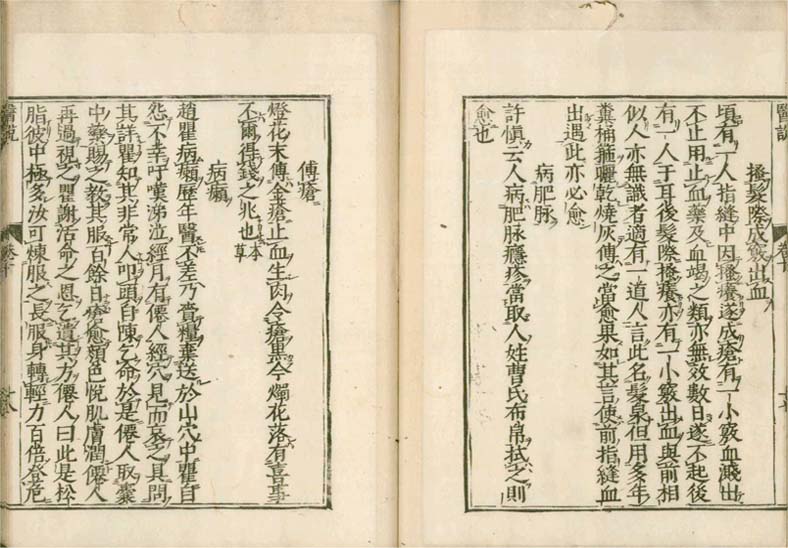 醫說
卷十
搔髮際成竅出血
頃有一人指縫中因搔癢遂成瘡有一小竅血濺出
不止用止血藥及血竭之類亦無效數日遂不起後
有一人于耳後髮際搔癢亦有一小竅出血與前相
似人亦無識者適有一道人言此名髮泉但用多年
糞桶箍曬乾燒灰傅之當愈果如其言使前指縫血
出遇此亦必愈
病肥脉
許慎云人病肥脉癮疹當取人姓曹氏布帛拭之則
愈也
傅瘡
燈花末傅金瘡止血生肉令瘡黑今燭花落有喜事
不爾得錢之兆也本草
病癩
趙瞿病癩歷年醫不差乃賫糧棄送於山穴中瞿自
怨不幸吁嘆涕泣經月有僊人經穴見而哀之具問
其詳瞿知其非常人叩頭自陳乞命於是僊人取囊
中藥賜之教其服百餘日瘡愈顏色悅肌膚潤僊人
再過視之瞿謝活命之恩乞遺其方僊人曰此是松
脂彼中極多汝可煉服之長服身轉輕力百倍登危
醫說
卷十